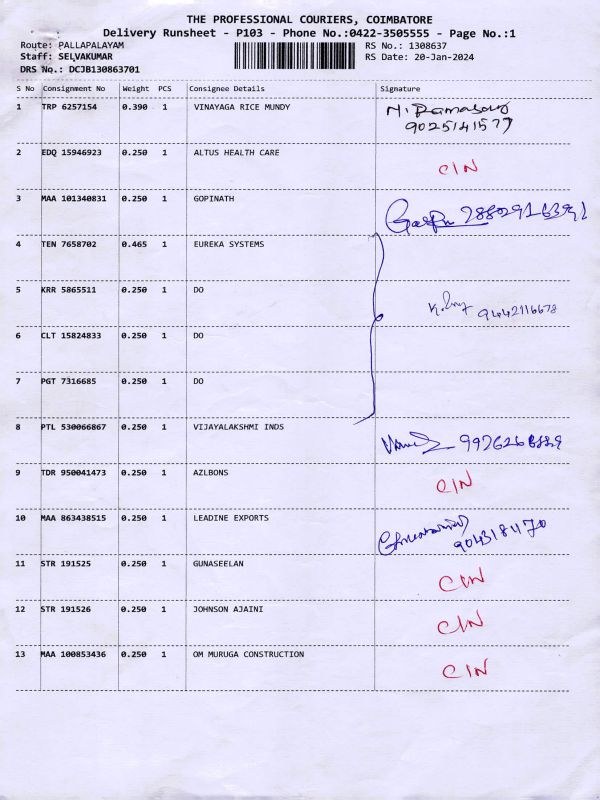 THE PROFESSIONAL COURIERS, COIMBATORE
Delivery Runsheet - P103 - Phone No.:0422-3505555 - Page No.:1
Route: PALLAPALAYAM RS No.: 1308637
Staff: SELVAKUMAR RS Date: 20-Jan-2024
DRS No.: DCJB130863701
S No Consignment No Weight PCS Consignee Details Signature
1 TRP 6257154 0.390 1 VINAYAGA RICE MUNDY
9025141577
2 EDQ 15946923 0.250 1 ALTUS HEALTH CARE CIN
3 MAA 101340831 0.250 1 GOPINATH
4 TEN 7658702 0.465 1 EUREKA SYSTEMS
5 KRR 5865511 0.250 1 DO 9442116678
6 CLT 15824833 0.250 1 DO
7 PGT 7316685 0.250 1 DO
8 PTL 530066867 0.250 1 VIJAYALAKSHMI INDS
9 TDR 950041473 0.250 1 AZLBONS CIN
10 MAA 863438515 0.250 1 LEADINE EXPORTS
11 STR 191525 0.250 1 GUNASEELAN CIN
12 STR 191526 0.250 1 JOHNSON AJAINI CIN
13 MAA 100853436 0.250 1 OM MURUGA CONSTRUCTION CIN